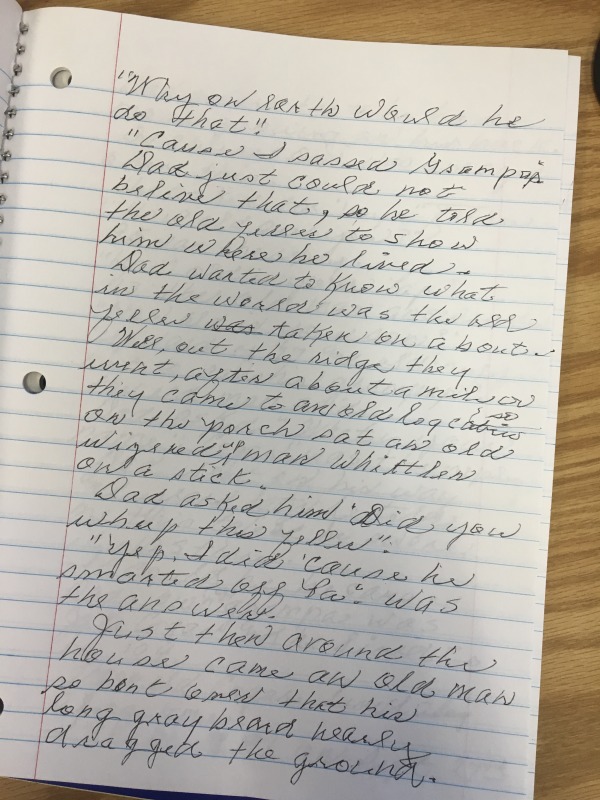 "Why on earth would he
do that!"
"Cause I sassed Grampa"
Dad just could not
belive that, so he told
the old feller to show
him where he lived.
Dad wanted to know what
in the world was the old
feller was taken on about.
Well, out the ridge they
went, after about a mile or so
they came to an old log cabin
on the porch sat an old
wizened man whittlen
on a stick.
Dad asked him "Did you
whup this feller".
"Yep, I did 'cause he
smarted off to Pa". was
the answer.
Just then around the
house came an old man
so bent over that his
long gray beard nearly
dragged the ground.